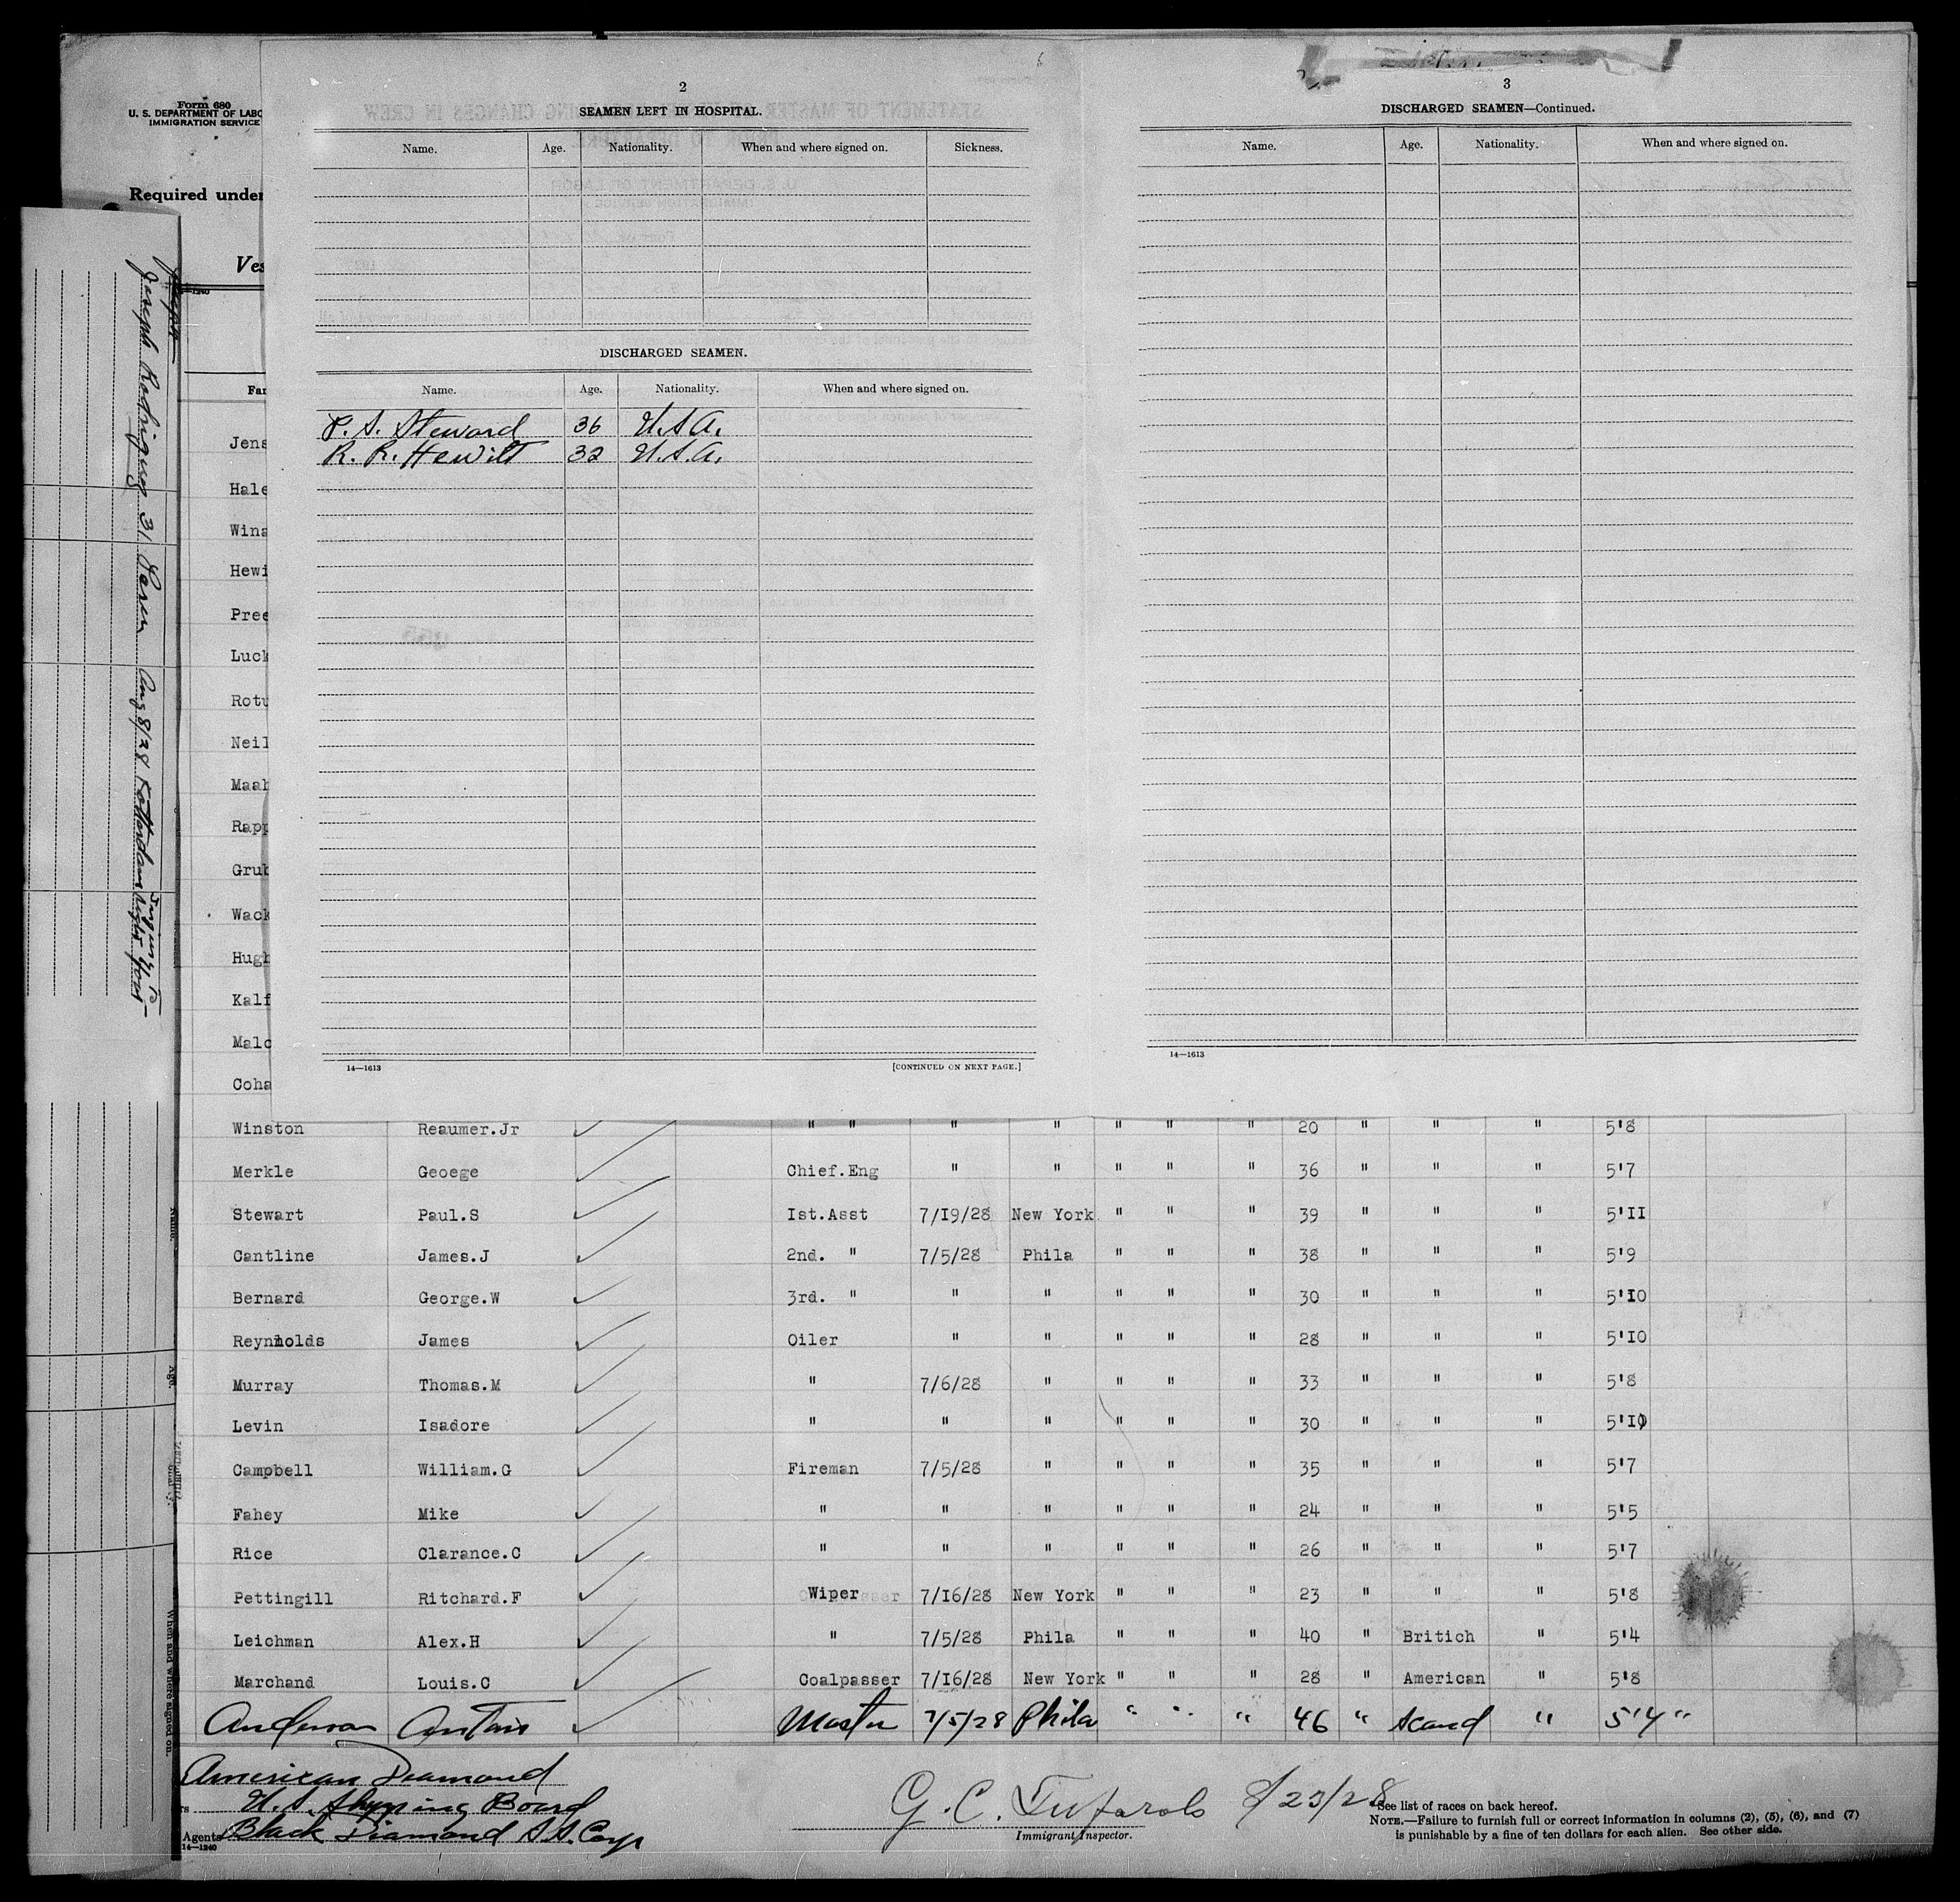 Form 680
U. S. DEPARTMENT OF LABO
IMMIGRATION SERVICE
Required under
Ves
14—1240
Fam
Jens
Hale
Wins
Hewi
Pree
Luck
Rotu
Neil
Maah
Rapp
Grub
Wack
Hugh
Kalf
Malc
Coha
Joseph
Joseph Rodriguez 31 Aug 8/28 Rotterdam Injury to Right Foot
Name.
Age.
When and where signed on.
2
SEAMEN LEFT IN HOSPITAL.
Name. Age. Nationality. When and where signed on. Sickness.
DISCHARGED SEAMEN.
Name. Age. Nationality. When and where signed on.
P. S. Steward 36 U.S.A.
R. R. Hewitt 32 U.S.A.
14—1613 [CONTINUED ON NEXT PAGE.]
3
DISCHARGED SEAMEN—Continued.
Name. Age. Nationality. When and where signed on.
14—1613
Winston Reaumer.Jr " " " " " " " 20 " " " 5'8
Merkle Geoege Chief.Eng " " " " " 36 " " " 5'7
Stewart Paul.S Ist.Asst 7/I9/28 New York " " " 39 " " " 5'II
Cantline James.J 2nd. " 7/5/28 Phila " " " 38 " " " 5'9
Bernard George.W 3rd. " " " " " " 30 " " " 5'I0
Reynholds James Oiler " " " " " 28 " " " 5'I0
Murray Thomas.M " 7/6/28 " " " " 33 " " " 5'8
Levin Isadore " " " " " " 30 " " " 5'I0
Campbell William.G Fireman 7/5/28 " " " " 35 " " " 5'7
Fahey Mike " " " " " " 24 " " " 5'5
Rice Clarance.C " " " " " " 26 " " " 5'7
Pettingill Ritchard.F Wiper 7/I6/28 New York " " " 23 " " " 5'8
Leichman Alex.H " 7/5/28 Phila " " " 40 " Britich " 5'4
Marchand Louis.C Coalpasser 7/I6/28 New York " " " 28 " American " 5'8
Anderson Master 7/5/28 Phila " " " 46 " Scand " 5'4"
American Diamond
rs U. S. Shipping Board
Agents Black Diamond S.S. Corp
14—1240
G. C. 8/23/28
Immigrant Inspector.
*See list of races on back hereof.
NOTE.—Failure to furnish full or correct information in columns (2), (5), (6), and (7)
is punishable by a fine of ten dollars for each alien. See other side.